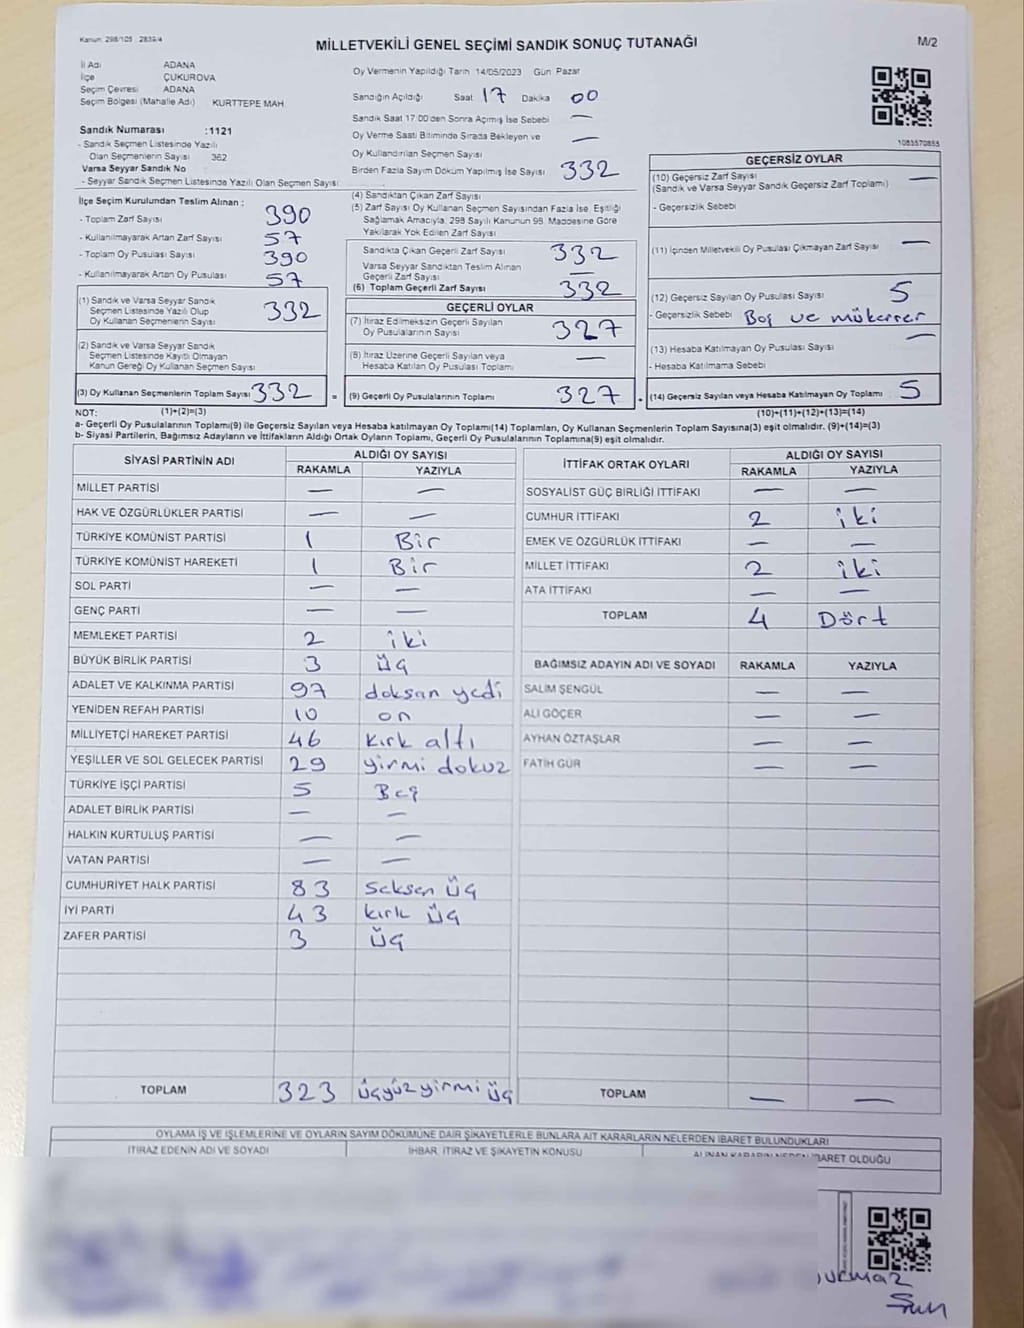 Kanun: 298/105 2839/4
MİLLETVEKİLİ GENEL SEÇİMİ SANDIK SONUÇ TUTANAĞI
M/2
İl Adı ADANA
İlçe ÇUKUROVA
Seçim Çevresi ADANA
Seçim Bölgesi (Mahalle Adı) KURTTEPE MAH
Sandık Numarası :1121
- Sandık Seçmen Listesinde Yazılı
Olan Seçmenlerin Sayısı 362
Varsa Seyyar Sandık No
- Seyyar Sandık Seçmen Listesinde Yazılı Olan Seçmen Sayısı:
İlçe Seçim Kurulundan Teslim Alınan :
- Toplam Zarf Sayısı 390
- Kullanılmayarak Artan Zarf Sayısı 57
- Toplam Oy Pusulası Sayısı 390
- Kullanılmayarak Artan Oy Pusulası 57
(1) Sandık ve Varsa Seyyar Sandık
Seçmen Listesinde Yazılı Olup
Oy Kullanan Seçmenlerin Sayısı 332
(2) Sandık ve Varsa Seyyar Sandık
Seçmen Listesinde Kayıtlı Olmayan
Kanun Gereği Oy Kullanan Seçmen Sayısı
(3) Oy Kullanan Seçmenlerin Toplam Sayısı 332 =
Oy Vermenin Yapıldığı Tarih 14/05/2023 Gün Pazar
Sandığın Açıldığı Saat 17 Dakika 00
Sandık Saat 17:00'den Sonra Açımış İse Sebebi —
Oy Verme Saati Bitiminde Sırada Bekleyen ve —
Oy Kullandırılan Seçmen Sayısı
Birden Fazla Sayım Döküm Yapılmış İse Sayısı 332
(4) Sandıktan Çıkan Zarf Sayısı
(5) Zarf Sayısı Oy Kullanan Seçmen Sayısından Fazla İse, Eşitliği
Sağlamak Amacıyla, 298 Sayılı Kanunun 98. Maddesine Göre
Yakılarak Yok Edilen Zarf Sayısı
Sandıkta Çıkan Geçerli Zarf Sayısı 332
Varsa Seyyar Sandıktan Teslim Alınan
Geçerli Zarf Sayısı —
(6) Toplam Geçerli Zarf Sayısı 332
GEÇERLİ OYLAR
(7) İtiraz Edilmeksizin Geçerli Sayılan
Oy Pusulalarının Sayısı 327
(8) İtiraz Üzerine Geçerli Sayılan veya —
Hesaba Katılan Oy Pusulası Toplamı
(9) Geçerli Oy Pusulalarının Toplamı 327
1083570855
GEÇERSİZ OYLAR
(10) Geçersiz Zarf Sayısı —
(Sandık ve Varsa Seyyar Sandık Geçersiz Zarf Toplamı)
- Geçersizlik Sebebi
(11) İçinden Milletvekili Oy Pusulası Çıkmayan Zarf Sayısı —
(12) Geçersiz Sayılan Oy Pusulası Sayısı 5
- Geçersizlik Sebebi Boş ve mükerrer
(13) Hesaba Katılmayan Oy Pusulası Sayısı —
- Hesaba Katılmama Sebebi
(14) Geçersiz Sayılan veya Hesaba Katılmayan Oy Toplamı 5
NOT: (1)+(2)=(3) (10)+(11)+(12)+(13)=(14)
a- Geçerli Oy Pusulalarının Toplamı(9) ile Geçersiz Sayılan veya Hesaba katılmayan Oy Toplamı(14) Toplamları, Oy Kullanan Seçmenlerin Toplam Sayısına(3) eşit olmalıdır. (9)+(14)=(3)
b- Siyasi Partilerin, Bağımsız Adayların ve İttifakların Aldığı Ortak Oyların Toplamı, Geçerli Oy Pusulalarının Toplamına(9) eşit olmalıdır.
SİYASİ PARTİNİN ADI ALDIĞI OY SAYISI
RAKAMLA YAZIYLA
MİLLET PARTİSİ — —
HAK VE ÖZGÜRLÜKLER PARTİSİ — —
TÜRKİYE KOMÜNİST PARTİSİ 1 Bir
TÜRKİYE KOMÜNİST HAREKETİ 1 Bir
SOL PARTİ — —
GENÇ PARTİ — —
MEMLEKET PARTİSİ 2 iki
BÜYÜK BİRLİK PARTİSİ 3 üç
ADALET VE KALKINMA PARTİSİ 97 doksan yedi
YENİDEN REFAH PARTİSİ 10 on
MİLLİYETÇİ HAREKET PARTİSİ 46 kırk altı
YEŞİLLER VE SOL GELECEK PARTİSİ 29 yirmi dokuz
TÜRKİYE İŞÇİ PARTİSİ 5 Beş
ADALET BİRLİK PARTİSİ — —
HALKIN KURTULUŞ PARTİSİ — —
VATAN PARTİSİ — —
CUMHURİYET HALK PARTİSİ 83 seksen üç
İYİ PARTİ 43 kırk üç
ZAFER PARTİSİ 3 üç
TOPLAM 323 üçyüzyirmi üç
İTTİFAK ORTAK OYLARI ALDIĞI OY SAYISI
RAKAMLA YAZIYLA
SOSYALİST GÜÇ BİRLİĞİ İTTİFAKI — —
CUMHUR İTTİFAKI 2 iki
EMEK VE ÖZGÜRLÜK İTTİFAKI — —
MİLLET İTTİFAKI 2 iki
ATA İTTİFAKI — —
TOPLAM 4 Dört
BAĞIMSIZ ADAYIN ADI VE SOYADI RAKAMLA YAZIYLA
SALİM ŞENGÜL — —
ALİ GÖÇER — —
AYHAN ÖZTAŞLAR — —
FATİH GÜR — —
TOPLAM — —
OYLAMA İŞ VE İŞLEMLERİNE VE OYLARIN SAYIM DÖKÜMÜNE DAİR ŞİKAYETLERLE BUNLARA AİT KARARLARIN NELERDEN İBARET BULUNDUKLARI
İTİRAZ EDENİN ADI VE SOYADI İHBAR, İTİRAZ VE ŞİKAYETİN KONUSU ALINAN KARARIN NEDEN İBARET OLDUĞU